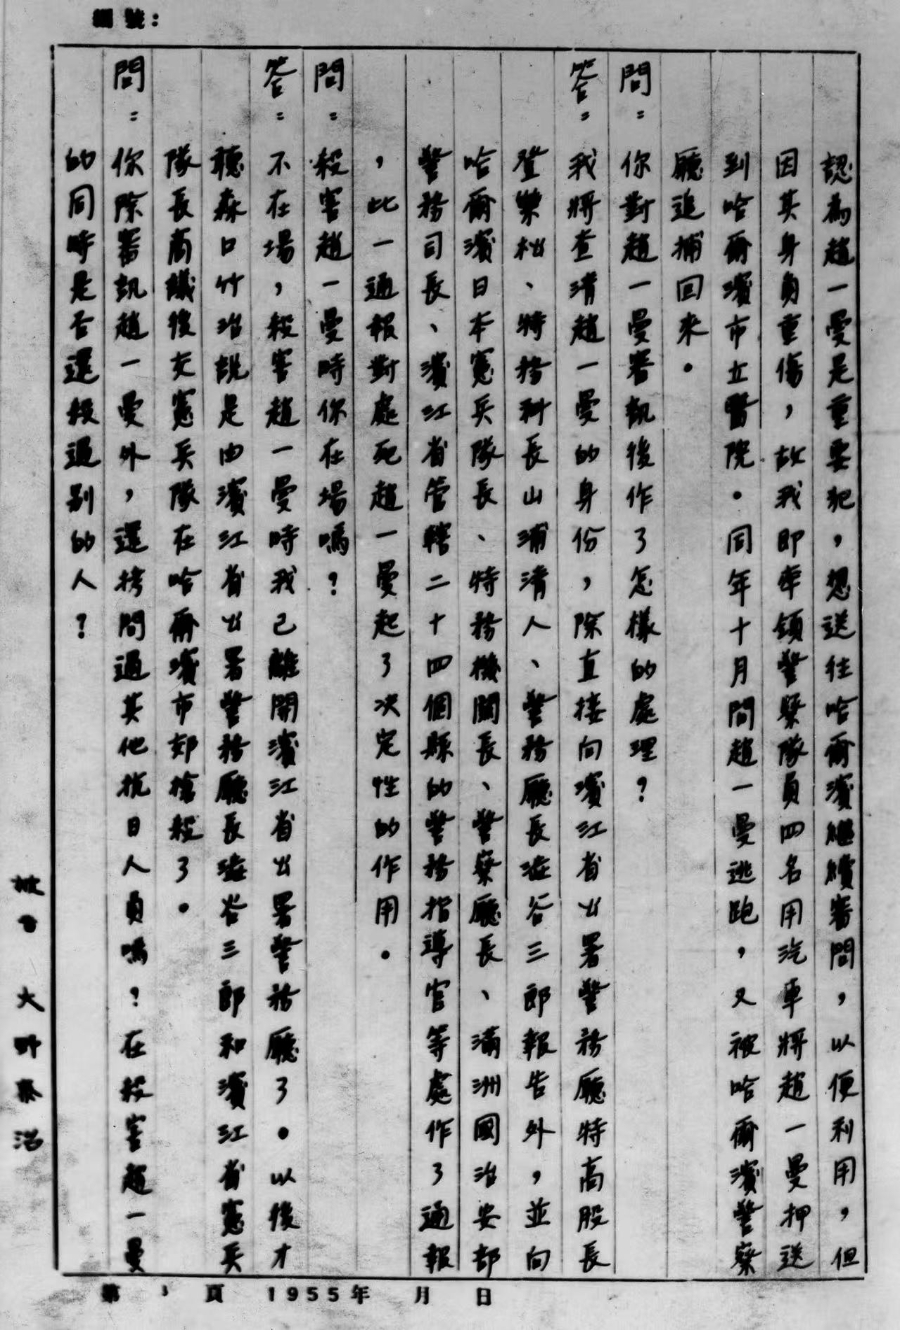 編號：
認為趙一曼是重要犯，想送往哈爾濱繼續審問，以便利用，但
因其身負重傷，故我即率領警察隊員四名用汽車將趙一曼押送
到哈爾濱市立醫院。同年十月間趙一曼逃跑，又被哈爾濱警察
廳追捕回來。
問：你對趙一曼審訊後作了怎樣的處理？
答：我將查清趙一曼的身份，除直接向濱江省公署警務廳特高股長
登樂松、特務科長山浦清人、警務廳長澁谷三郎報告外，並向
哈爾濱日本憲兵隊長、特務機關長、警察廳長、滿洲國治安部
警務司長、濱江省管轄二十四個縣的警務指導官等處作了通報
，此一通報對處死趙一曼起了決定性的作用。
問：殺害趙一曼時你在場嗎？
答：不在場，殺害趙一曼時我已離開濱江省公署警務廳了。以後才
聽森口竹治說是由濱江省公署警務廳長澁谷三郎和濱江省憲兵
隊長商議後交憲兵隊在哈爾濱市郊槍殺了。
問：你除審訊趙一曼外，還拷問過其他抗日人員嗎？在殺害趙一曼
的同時是否還殺過別的人？
被告 大野泰治
第 3 頁 1955年 月 日